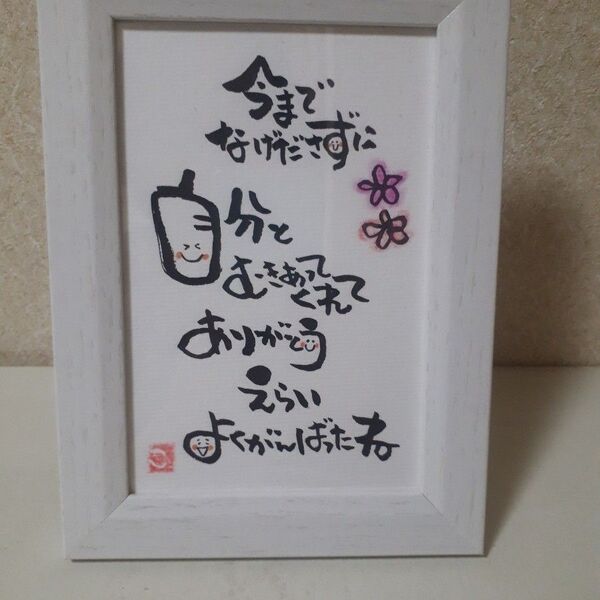 今まで
なげださずに
自分と
むきあって
くれて
ありがとう
えらい
よくがんばったね